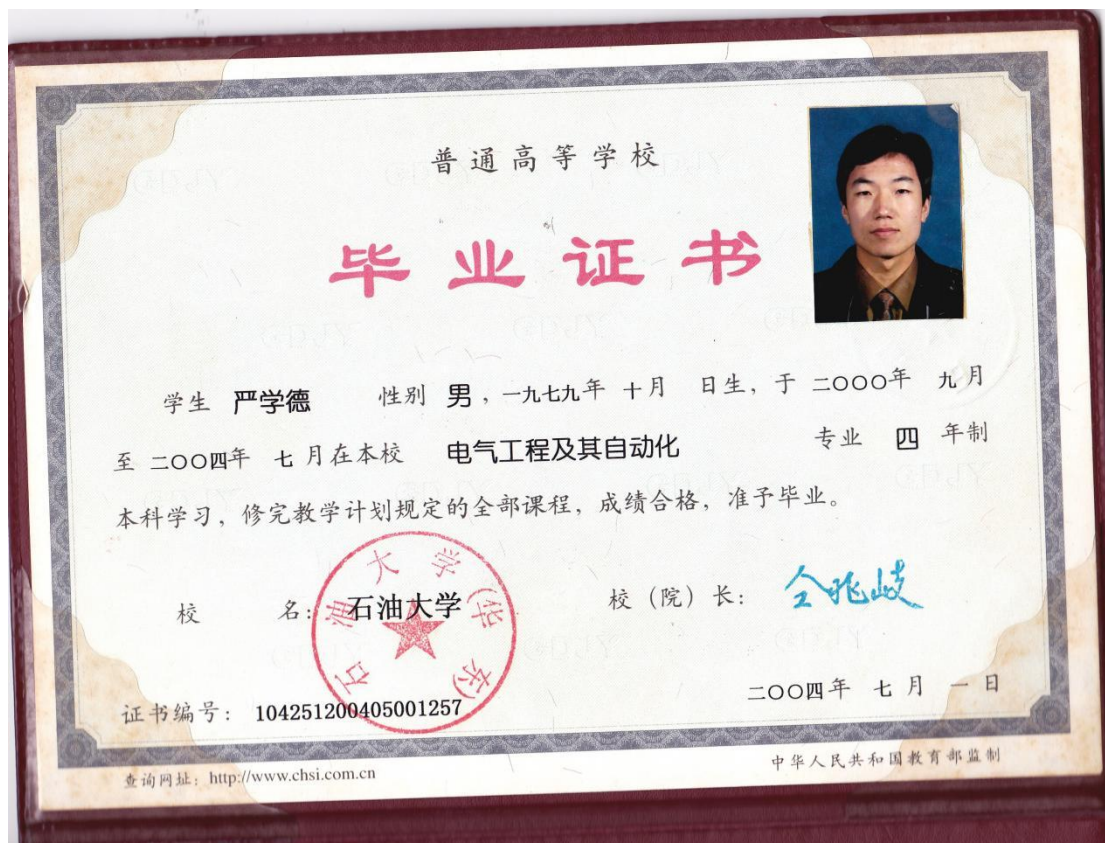 普通高等学校
毕业证书
学生 严学德 性别 男，一九七九年 十月 日生，于 二○○○年 九月
至 二○○四年 七月在本校 电气工程及其自动化 专业 四 年制
本科学习，修完教学计划规定的全部课程，成绩合格，准予毕业。
校 名：石油大学 校（院）长：仝兆岐
石油大学(华东)
二○○四年 七月 一日
证书编号：104251200405001257
查询网址：http://www.chsi.com.cn 中华人民共和国教育部监制